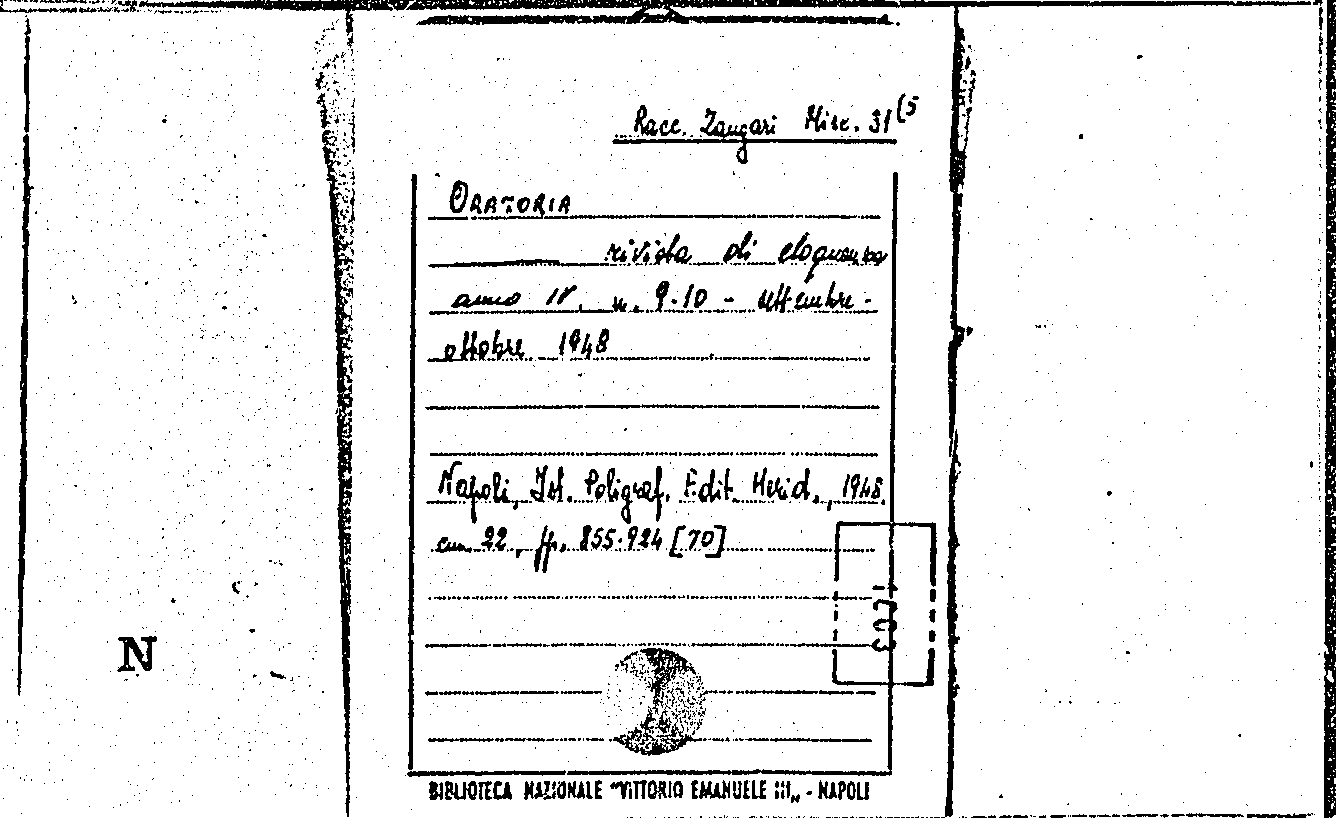 Racc. Zangari Misc. 31(5
ORATORIA
rivista di eloquenza
anno IV. n. 9-10 - settembre-
ottobre 1948
Napoli, Ist. Poligraf. Edit. Merid., 1948.
cm. 22, pp. 855-924 [70]
N
BIBLIOTECA NAZIONALE "VITTORIO EMANUELE III„ - NAPOLI